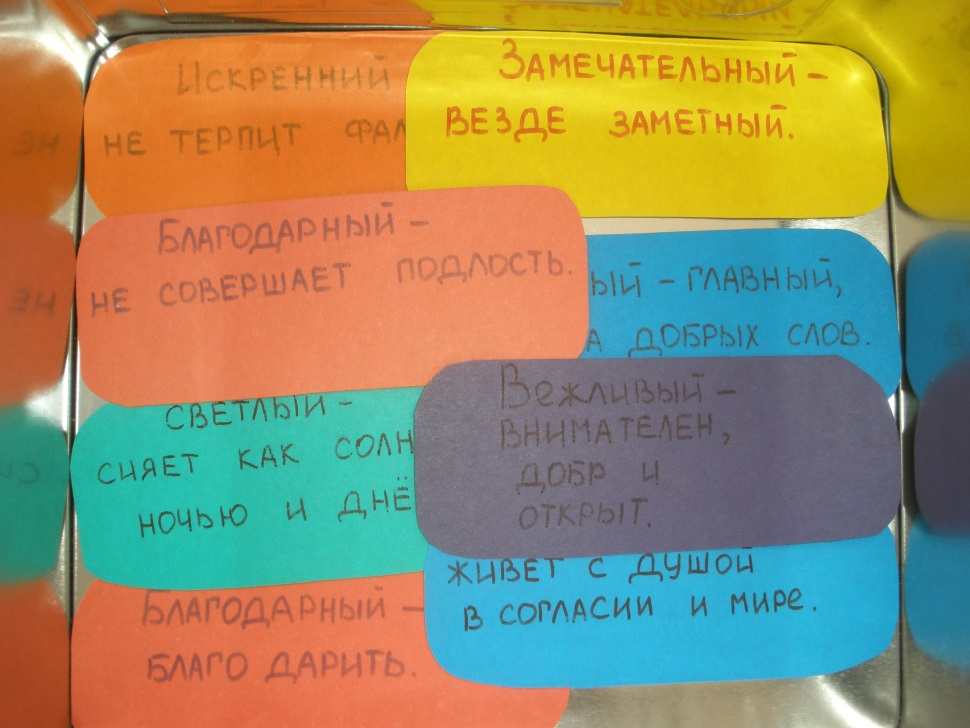 Искренний
не терпит
Замечательный –
везде заметный.
Благодарный –
не совершает подлость.
– главный,
добрых слов.
светлый –
сияет как
ночью и
Вежливый –
внимателен,
добр и
открыт.
живет с душой
в согласии и мире.
Благодарный –
благо дарить.